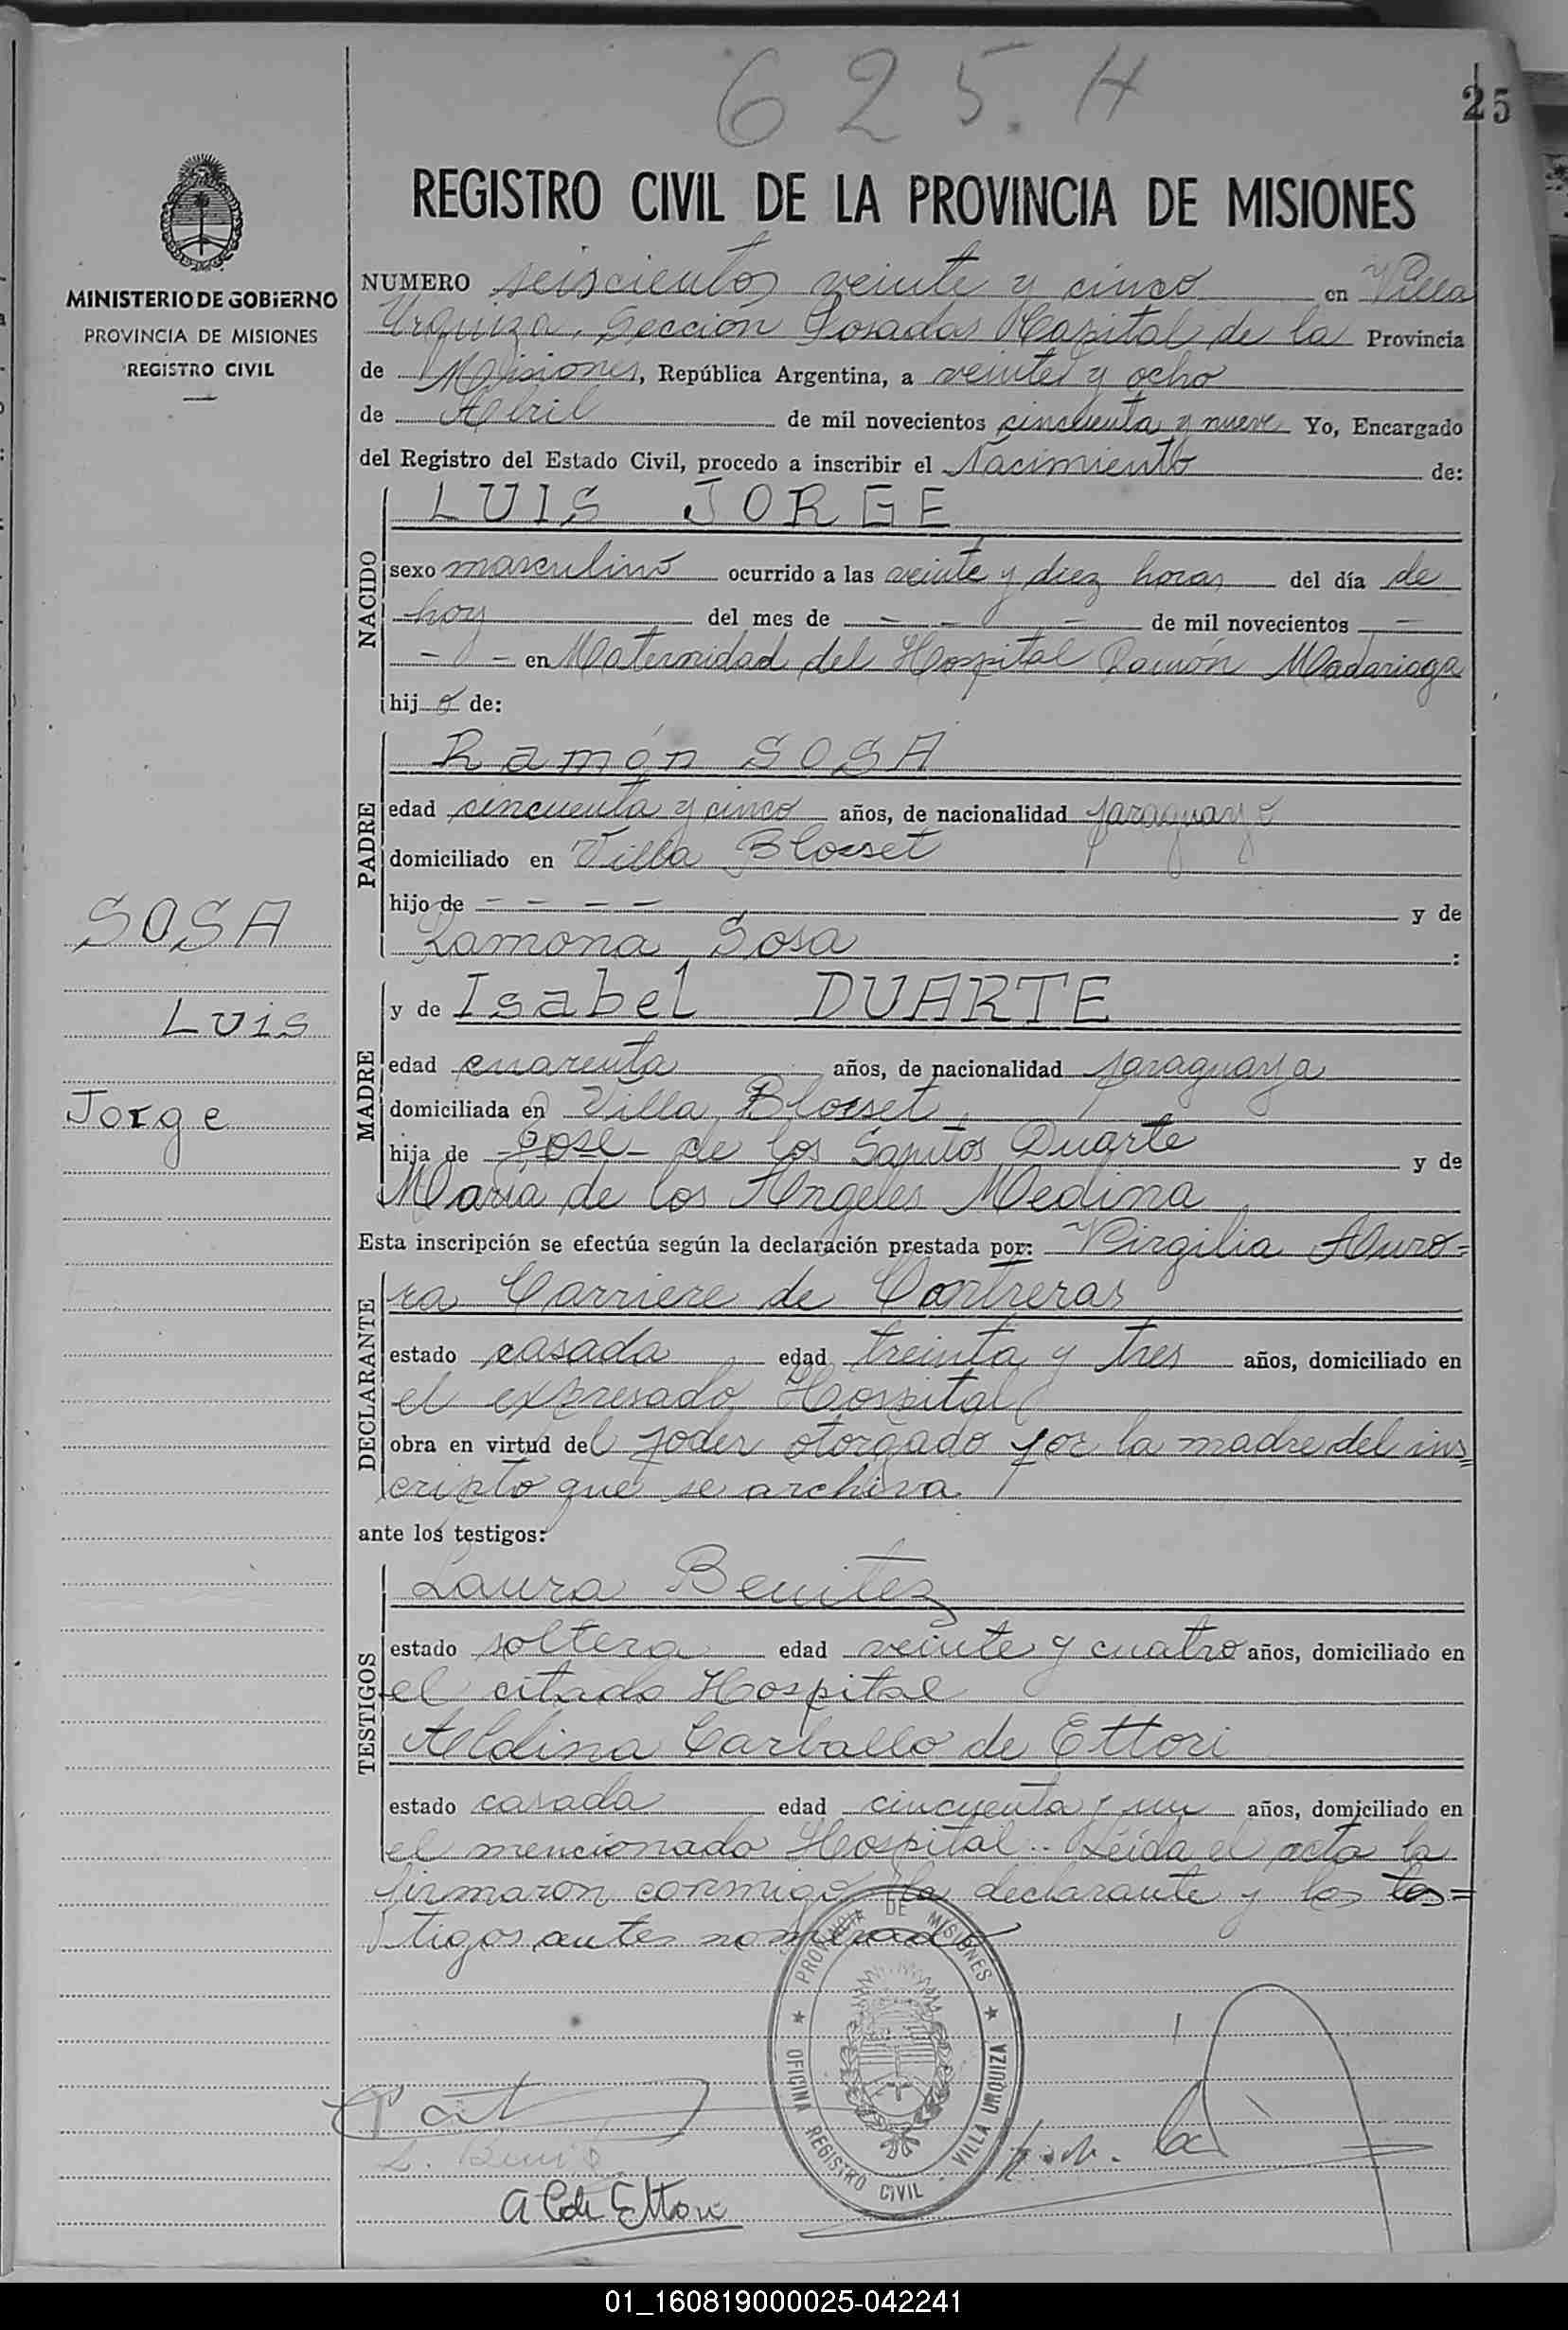 625. H
25
REGISTRO CIVIL DE LA PROVINCIA DE MISIONES
MINISTERIO DE GOBIERNO
PROVINCIA DE MISIONES
REGISTRO CIVIL
NUMERO seiscientos veinte y cinco en Villa
Urquiza, Sección Posadas Capital de la Provincia
de Misiones, República Argentina, a veinte y ocho
de Abril de mil novecientos cincuenta y nueve Yo, Encargado
del Registro del Estado Civil, procedo a inscribir el Nacimiento de:
NACIDO
LUIS JORGE
sexo masculino ocurrido a las veinte y diez horas del día de
hoy del mes de - - - de mil novecientos -
- - en Maternidad del Hospital Ramón Madariaga
hijo de:
PADRE
Ramón SOSA
edad cincuenta y cinco años, de nacionalidad paraguayo
domiciliado en Villa Blosset
hijo de - - - - y de
Ramona Sosa :
SOSA
Luis
Jorge
MADRE
y de Isabel DUARTE
edad cuarenta años, de nacionalidad paraguaya
domiciliada en Villa Blosset,
hija de José de los Santos Duarte y de
María de los Angeles Medina
Esta inscripción se efectúa según la declaración prestada por: Virgilia Auro=
DECLARANTE
ra Carriere de Contreras
estado casada edad treinta y tres años, domiciliado en
el expresado Hospital
obra en virtud del poder otorgado por la madre del ins=
cripto que se archiva
ante los testigos:
TESTIGOS
Laura Benitez
estado soltera edad veinte y cuatro años, domiciliado en
el citado Hospital
Aldina Carballo de Ettori
estado casada edad cincuenta y un años, domiciliado en
el mencionado Hospital.. Leída el acta la
firmaron conmigo la declarante y los tes=
tigos antes nombrados
PROVINCIA DE MISIONES
OFICINA REGISTRO CIVIL - VILLA URQUIZA
L. Benit
A C de Ettori
01_160819000025-042241